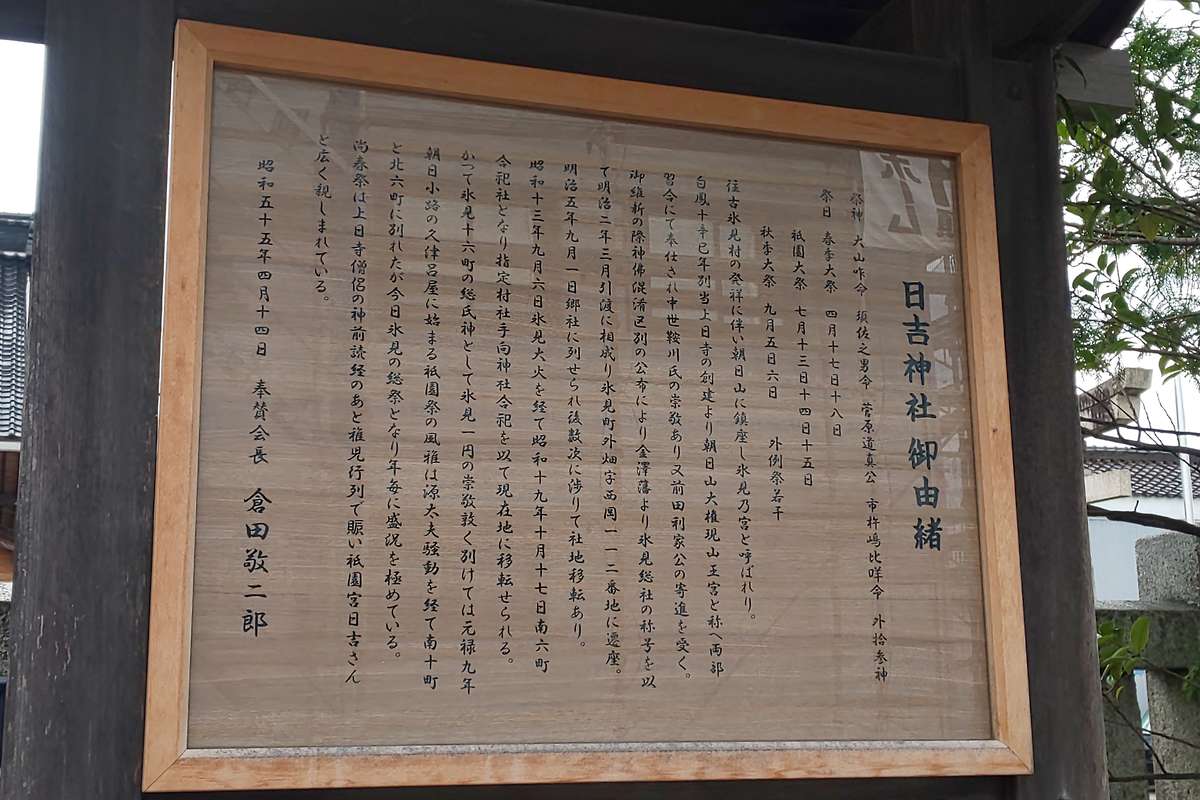 日吉神社御由緒
祭神 大山咋命 須佐之男命 菅原道真公 市杵嶋比咩命 外拾参神
祭日 春季大祭 四月十七日十八日
祇園大祭 七月十三日十四日十五日
秋季大祭 九月五日六日 外例祭若干
往古氷見村の発祥に伴い朝日山に鎮座し氷見乃宮と呼ばれり。
白鳳十辛巳年別当上日寺の創建より朝日山大権現山王宮と称へ両部
習合にて奉仕され中世鞍川氏の崇敬あり又前田利家公の寄進を受く。
御維新の際神佛混淆区別の公布により金澤藩より氷見総社の称号を以
て明治二年三月引渡に相成り氷見町外畑字西岡一一二番地に遷座。
明治五年九月一日郷社に列せられ後数次に渉りて社地移転あり。
昭和十三年九月六日氷見大火を経て昭和十九年十月十七日南六町
合祀社となり指定村社手向神社合祀を以て現在地に移転せられる。
かつて氷見十六町の総氏神として氷見一円の崇敬敦く別けては元禄九年
朝日小路の久津呂屋に始まる祇園祭の風雅は源大夫騒動を経て南十町
と北六町に別れたが今日氷見の総祭となり年毎に盛況を極めている。
尚春祭は上日寺僧侶の神前読経のあと稚児行列で賑い祇園宮日吉さん
と広く親しまれている。
昭和五十五年四月十四日 奉賛会長 倉田敬二郎